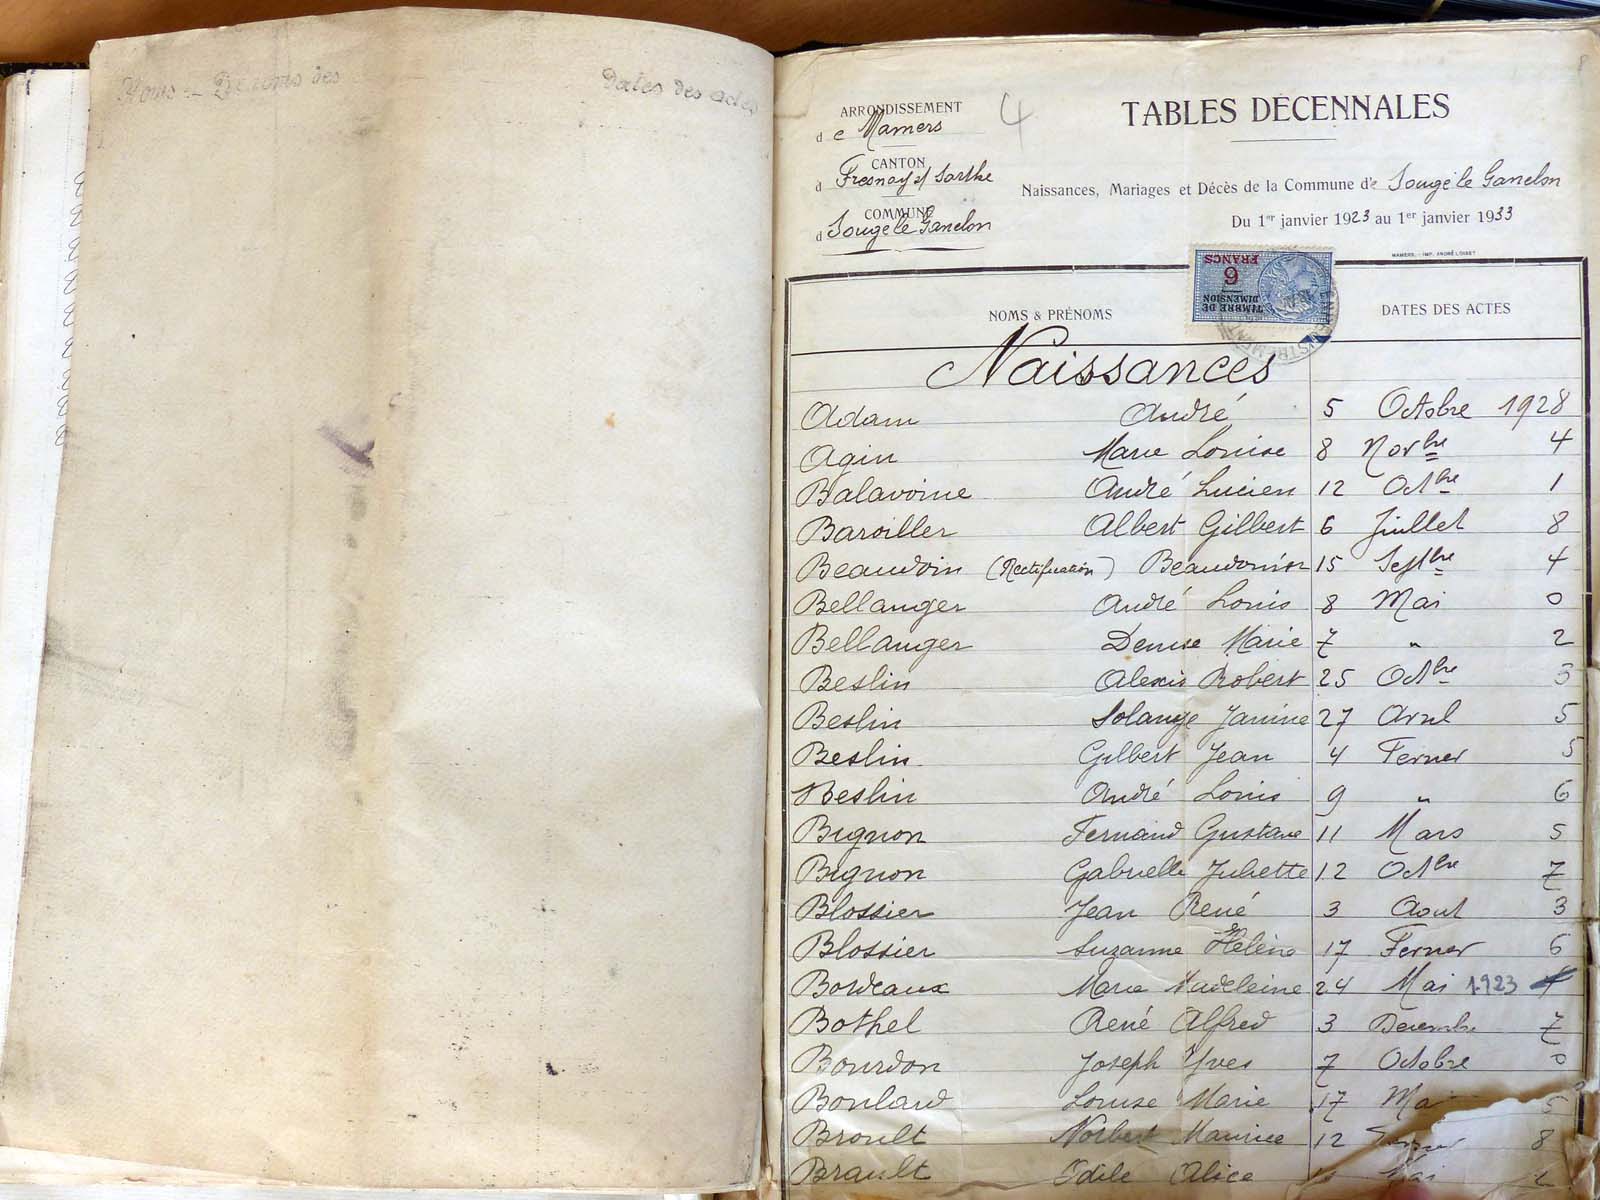 Noms - Prénoms des
Dates des actes
ARRONDISSEMENT
de Mamers
4
CANTON
d Fresnay s/ Sarthe
COMMUNE
d Sougé le Ganelon
TABLES DÉCENNALES
Naissances, Mariages et Décès de la Commune de Sougé le Ganelon
Du 1er janvier 1923 au 1er janvier 1933
MAMERS. - IMP. ANDRÉ LOISET
TIMBRE DE DIMENSION
6
FRANCS
NOMS & PRÉNOMS DATES DES ACTES
Naissances
Adam André 5 Octobre 1928
Agin Marie Louise 8 Novbre 4
Balavoine André Lucien 12 Octbre 1
Baroiller Albert Gilbert 6 Juillet 8
Beaudoin (Rectification) 15 Septbre 4
Bellanger André Louis 8 Mai 0
Bellanger Denise Marie 7 " 2
Beslin Alexis Robert 25 Octbre 3
Beslin Solange Janine 27 Avril 5
Beslin Gilbert Jean 4 Fevrier 5
Beslin André Louis 9 " 6
Bignon Fernand Gustave 11 Mars 5
Bignon Gabrielle Juliette 12 Octbre 7
Blossier Jean René 3 Aout 3
Blossier Suzanne Hélène 17 Fevrier 6
Bordeaux Marie Madeleine 24 Mai 1923
Bothel René Alfred 3 Decembre 7
Bourdon Joseph Yves 7 Octobre 0
Boulard Louise Marie 17 Mai 5
Broult Norbert Maurice 12 8
Brault Odile Alice Mai